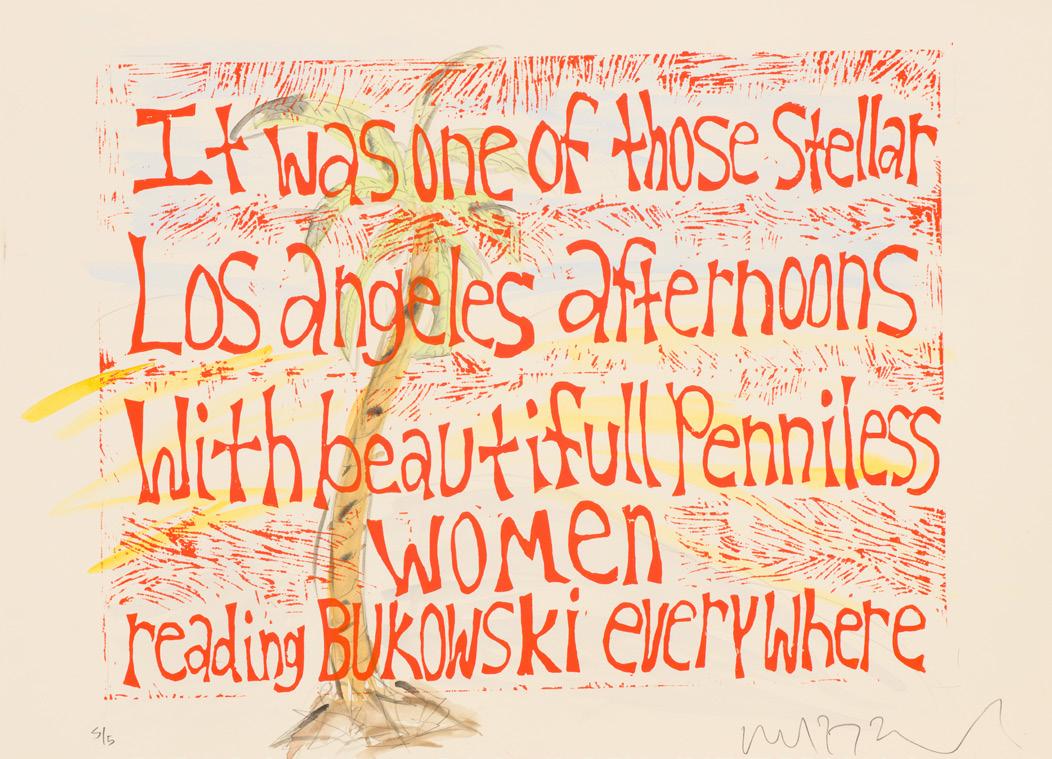 It was one of those Stellar
Los angeles afternoons
With beautifull Penniless
women
reading BUKOWSki everyWhere
5/5